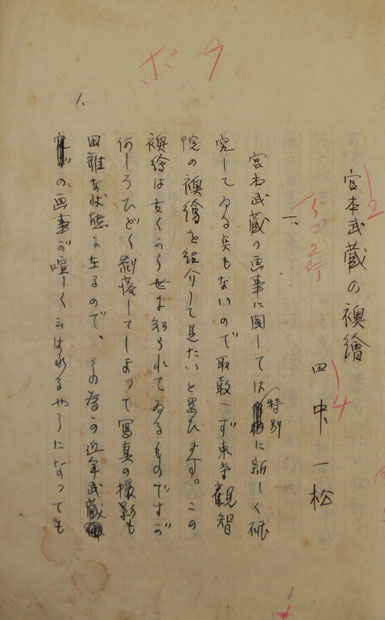 ポ 9
1.
12
宮本武蔵の襖繪
イ5ゴ 2行
14
田中一松
一、
宮本武蔵の画事に関しては特別に新しく研
究してゐる莫もないので取敢へず東寺観智
院の襖繪を紹介して見たいと思ひます。この
襖繪は古くから世に知られてゐるものですが
何しろひどく剥落してしまって寫真の撮影も
困難な状態に在るので、その為め近年武蔵
の画事が喧しく云はれるやうになっても